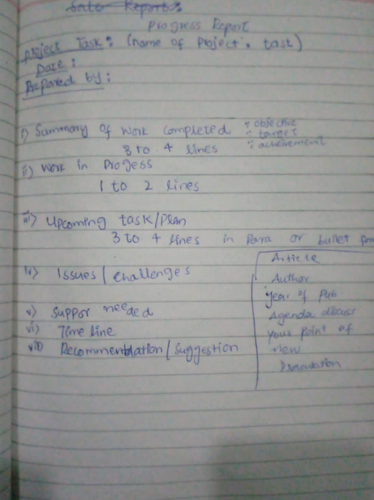 Sale Reports
Progress Report
Project Task: (name of Project, task)
Date:
Prepared by:
i) Summary of work completed
objective
target
achievement
3 to 4 lines
ii) Work in Progess
1 to 2 lines
iii) Upcoming task/Plan
3 to 4 lines in Para or bullet
iv) Issues/challenges
v) Suppor needed
vi) Time line
vii) Recommendation/Suggestion
Article
Author
year of Pub
Agenda discuss
your point of
view